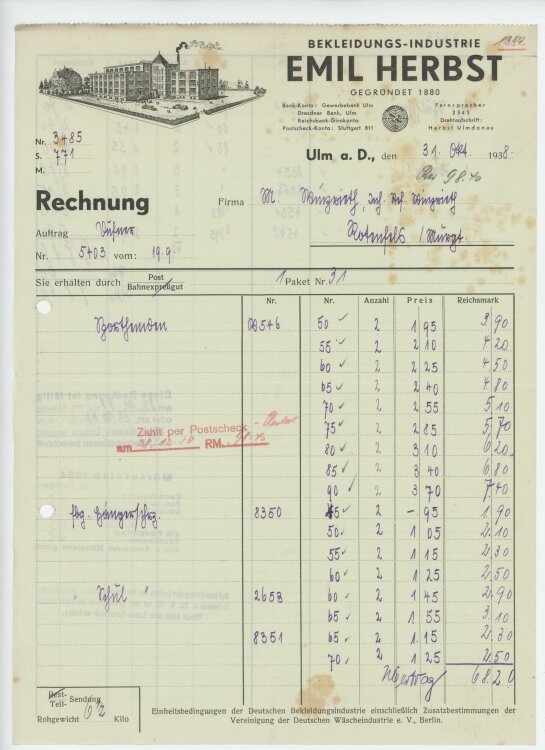 BEKLEIDUNGS-INDUSTRIE
1340.
EMIL HERBST
GEGRÜNDET 1880
Bank-Konto: Gewerbebank Ulm
Dresdner Bank, Ulm
Reichsbank-Girokonto
Postscheck-Konto: Stuttgart 811
Fernsprecher
2343
Drahtaufschrift:
Herbst Ulmdonau
Nr. 3485
S. 771
M.
Ulm a. D., den 31. Okt. 1938.
98.40
Rechnung
Firma M.
Auftrag
Rotenfels / Murgt.
Nr. 5403 vom: 19.9.
Sie erhalten durch Post
Bahnexpreßgut
1 Paket Nr. 31
Nr. Nr. Anzahl Preis Reichsmark
Sporthemden 8546 50 2 1 95 3.90
55 2 2 10 4.20
60 2 2 25 4.50
65 2 2 40 4.80
70 2 2 55 5.10
75 2 2 85 5.70
80 2 3 10 6.20
85 2 3 40 6.80
90 2 3 70 7.40
Zahlt per Postscheck
am 28.12.38 RM 98.40
8350 45 2 -.95 1.90
50 2 1 05 2.10
55 2 1 15 2.30
60 2 1 25 2.50
" Schul " 2653 60 2 1 45 2.90
65 2 1 55 3.10
8351 65 2 1.15 2.30
70 2 1 25 2.50
Übertrag 68.20
Rest-
Teil- Sendung
Rohgewicht 6½ Kilo
Einheitsbedingungen der Deutschen Bekleidungsindustrie einschließlich Zusatzbestimmungen der
Vereinigung der Deutschen Wäscheindustrie e. V., Berlin.